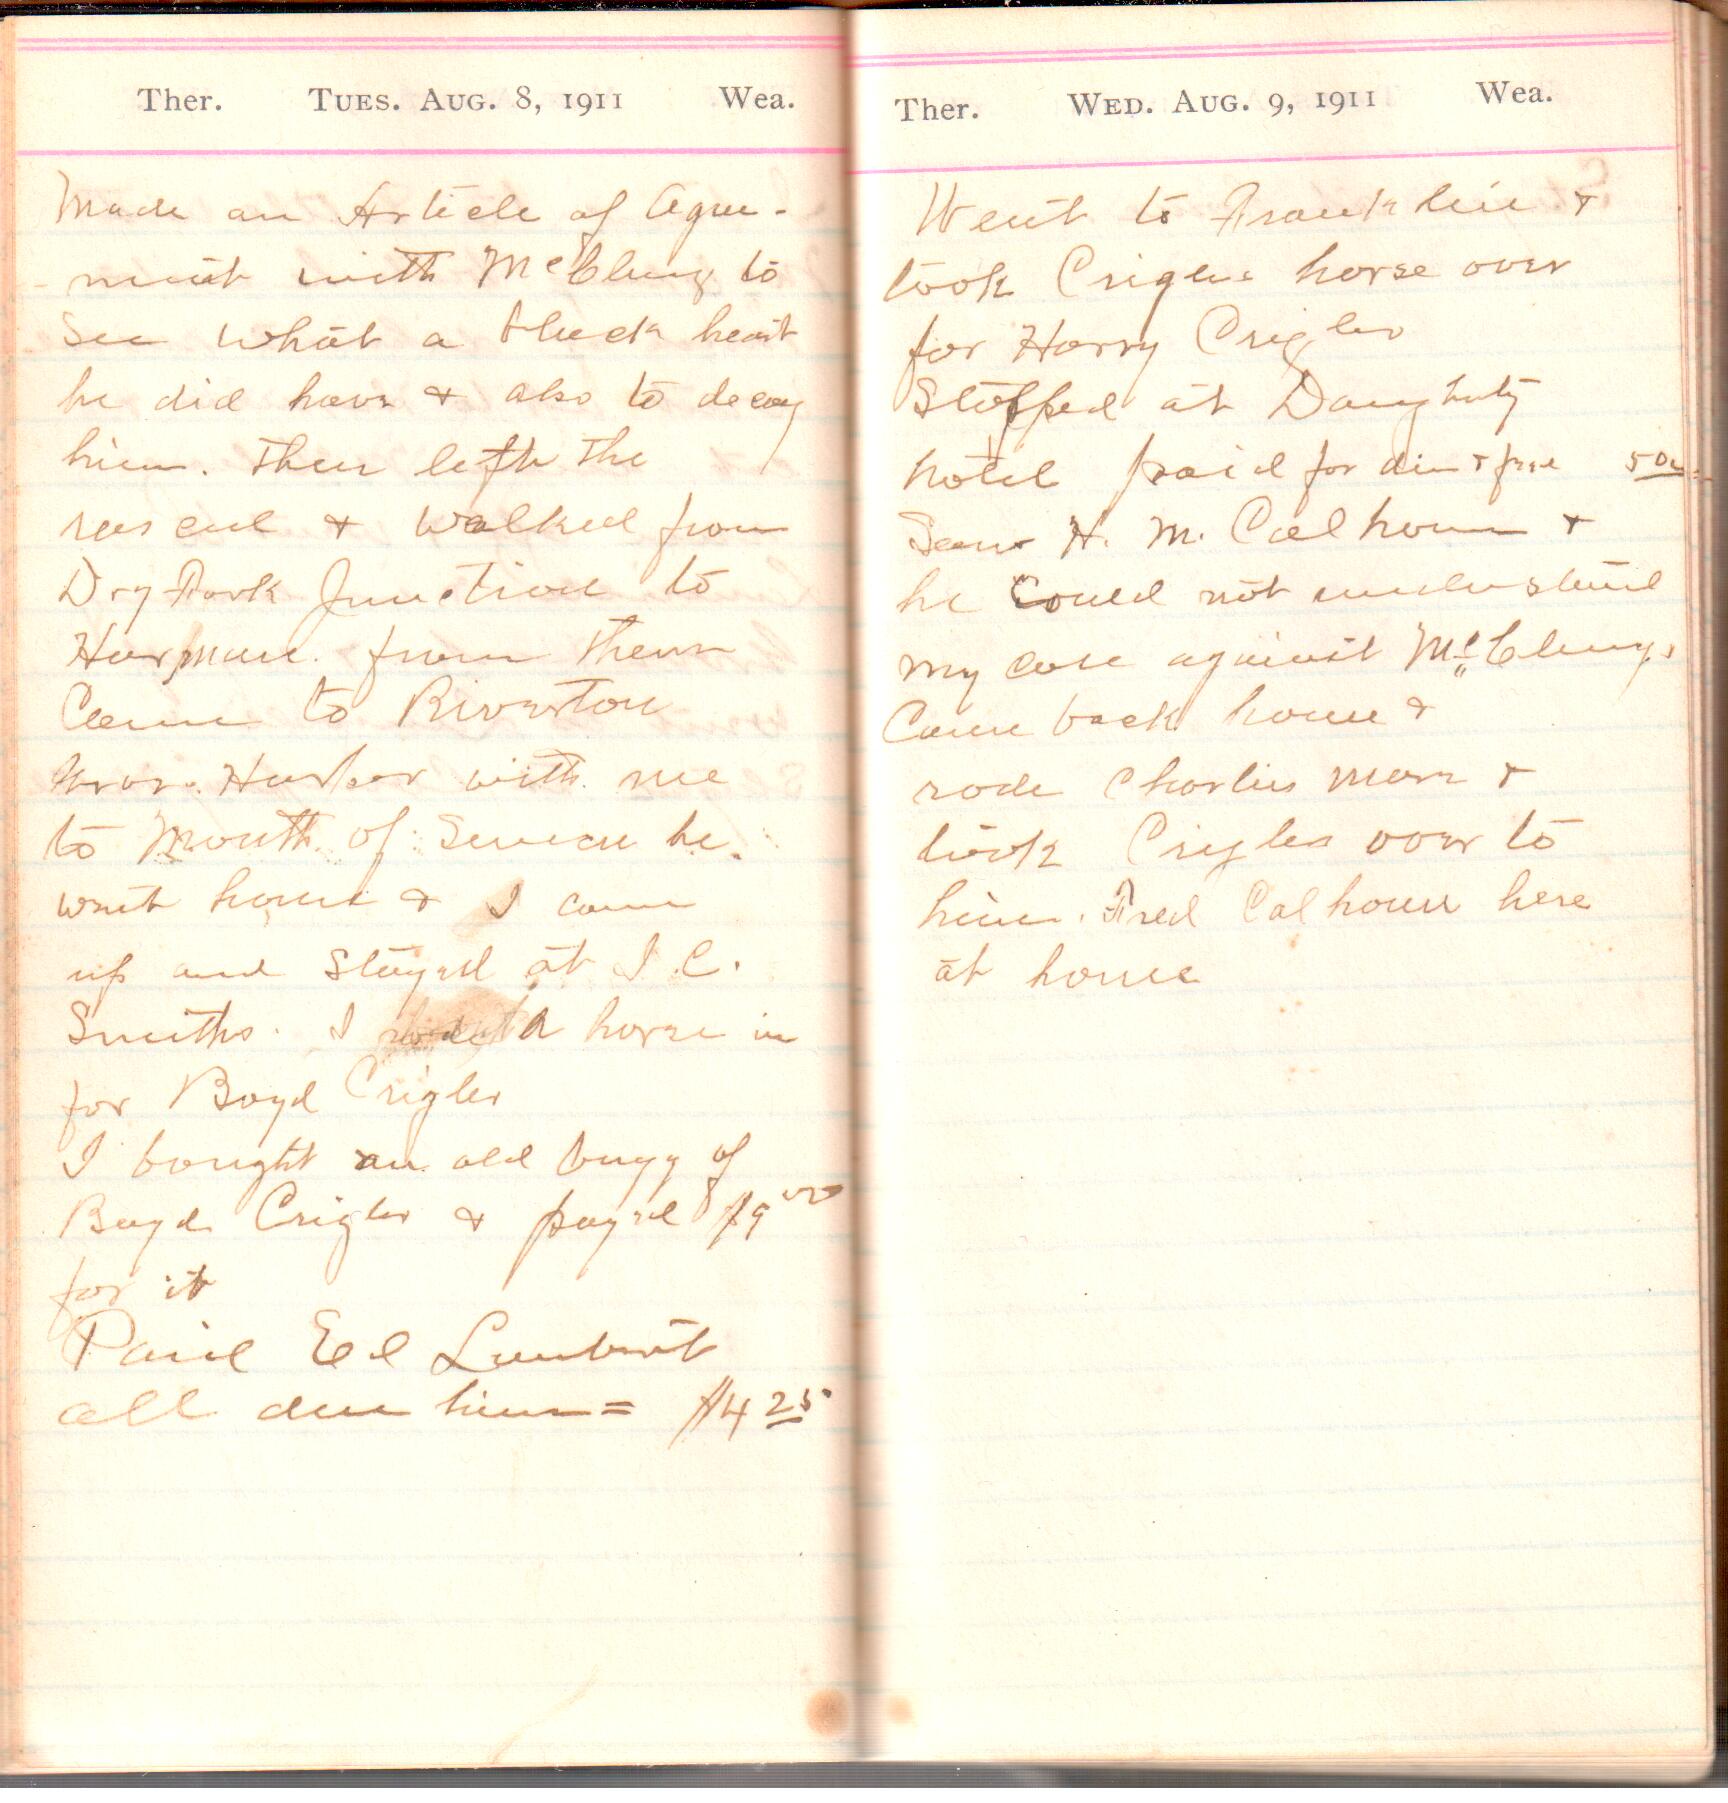 Ther. TUES. AUG. 8, 1911 Wea.
Made an Article of Agree-
-ment with McClung to
See what a black heart
he did have & also to decoy
him. then left the
rascal & walked from
Dry Fork Junction to
Harman. from there
Came to Riverton
Harper with me
to Mouth of Seneca he
went home & I came
up and Stayed at I. C.
Smiths. I rode a horse in
for Boyd Crigler
I bought an old buggy of
Boyd Crigler & payed $9 00
for it
Paid Ed Lambert
all due him = $4 25
Ther. WED. AUG. 9, 1911 Wea.
Went to Franklin &
took Criglers horse over
for Harry Crigler
Stopped at Daugherty
hotel paid for din & fee 50c
Seen H. M. Calhoun &
he Could not understand
my case against McClung.
Came back home &
rode Charlies mare &
took Criglers over to
him. Fred Calhoun here
at home